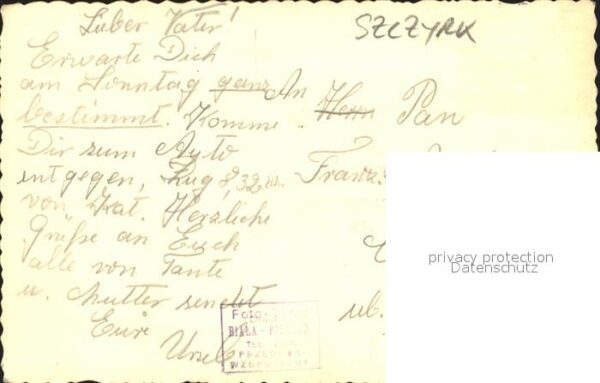 Lieber Vater!
SZCZYRK
Erwarte Dich
am Sonntag ganz
bestimmt. Komme
Dir zum Auto
entgegen, Zug 8,32 Uhr
von Kat. Herzliche
Grüße an Euch
alle von Tante
u. Mutter sendet
Eure
Ursel
An
Herrn Pan
Franz
ul.
Foto
BIAŁA
TEL
PRZEDRUK
WZBRONIONY
privacy protection
Datenschutz